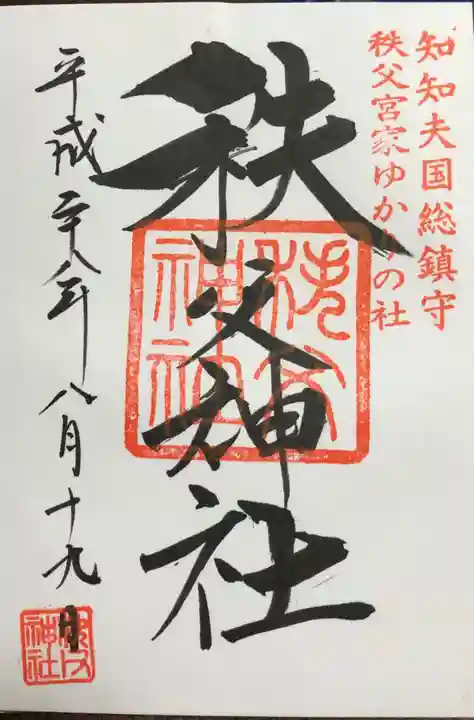 知知夫国総鎮守
秩父宮家ゆかりの社
秩父神社
秩父神社
平成二十八年八月十九日
秩父神社